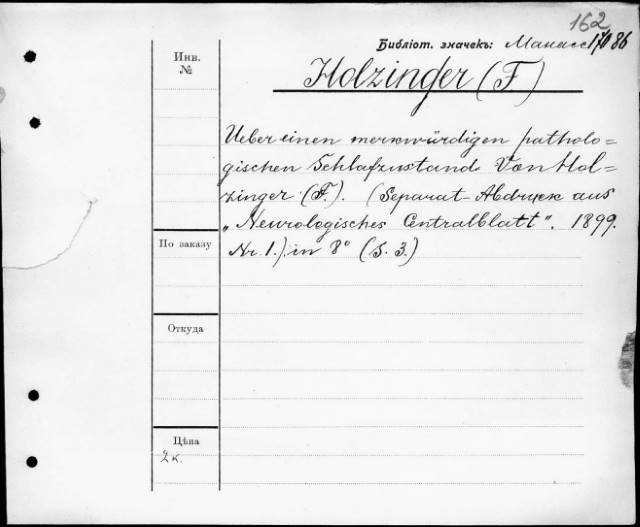 162
Библіот. значекъ:
Инв.
№
Holzinger (F)
Ueber einen merkwürdigen patholo=
gischen Schlafzustand Von Hol=
zinger (F.). (Separat-Abdruck aus
„Neurologisches Centralblatt". 1899.
Nr. 1.) in 8° (S. 3.)
По заказу
Откуда
Цѣна
2 к.